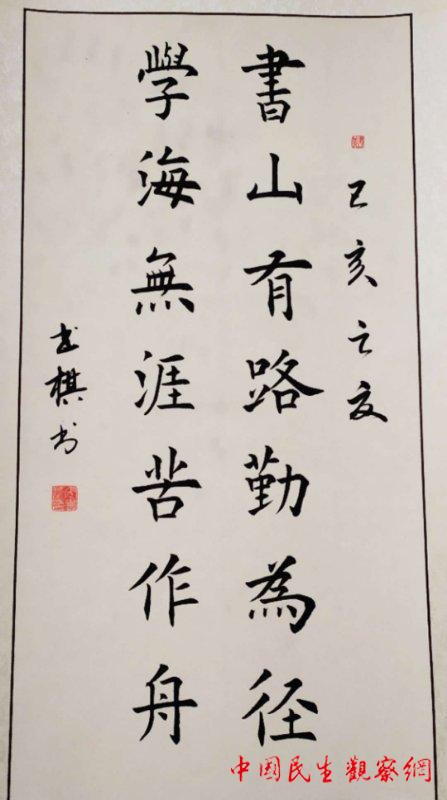 己亥之夏
書山有路勤為径
學海無涯苦作舟
棋书
中国民生觀察網